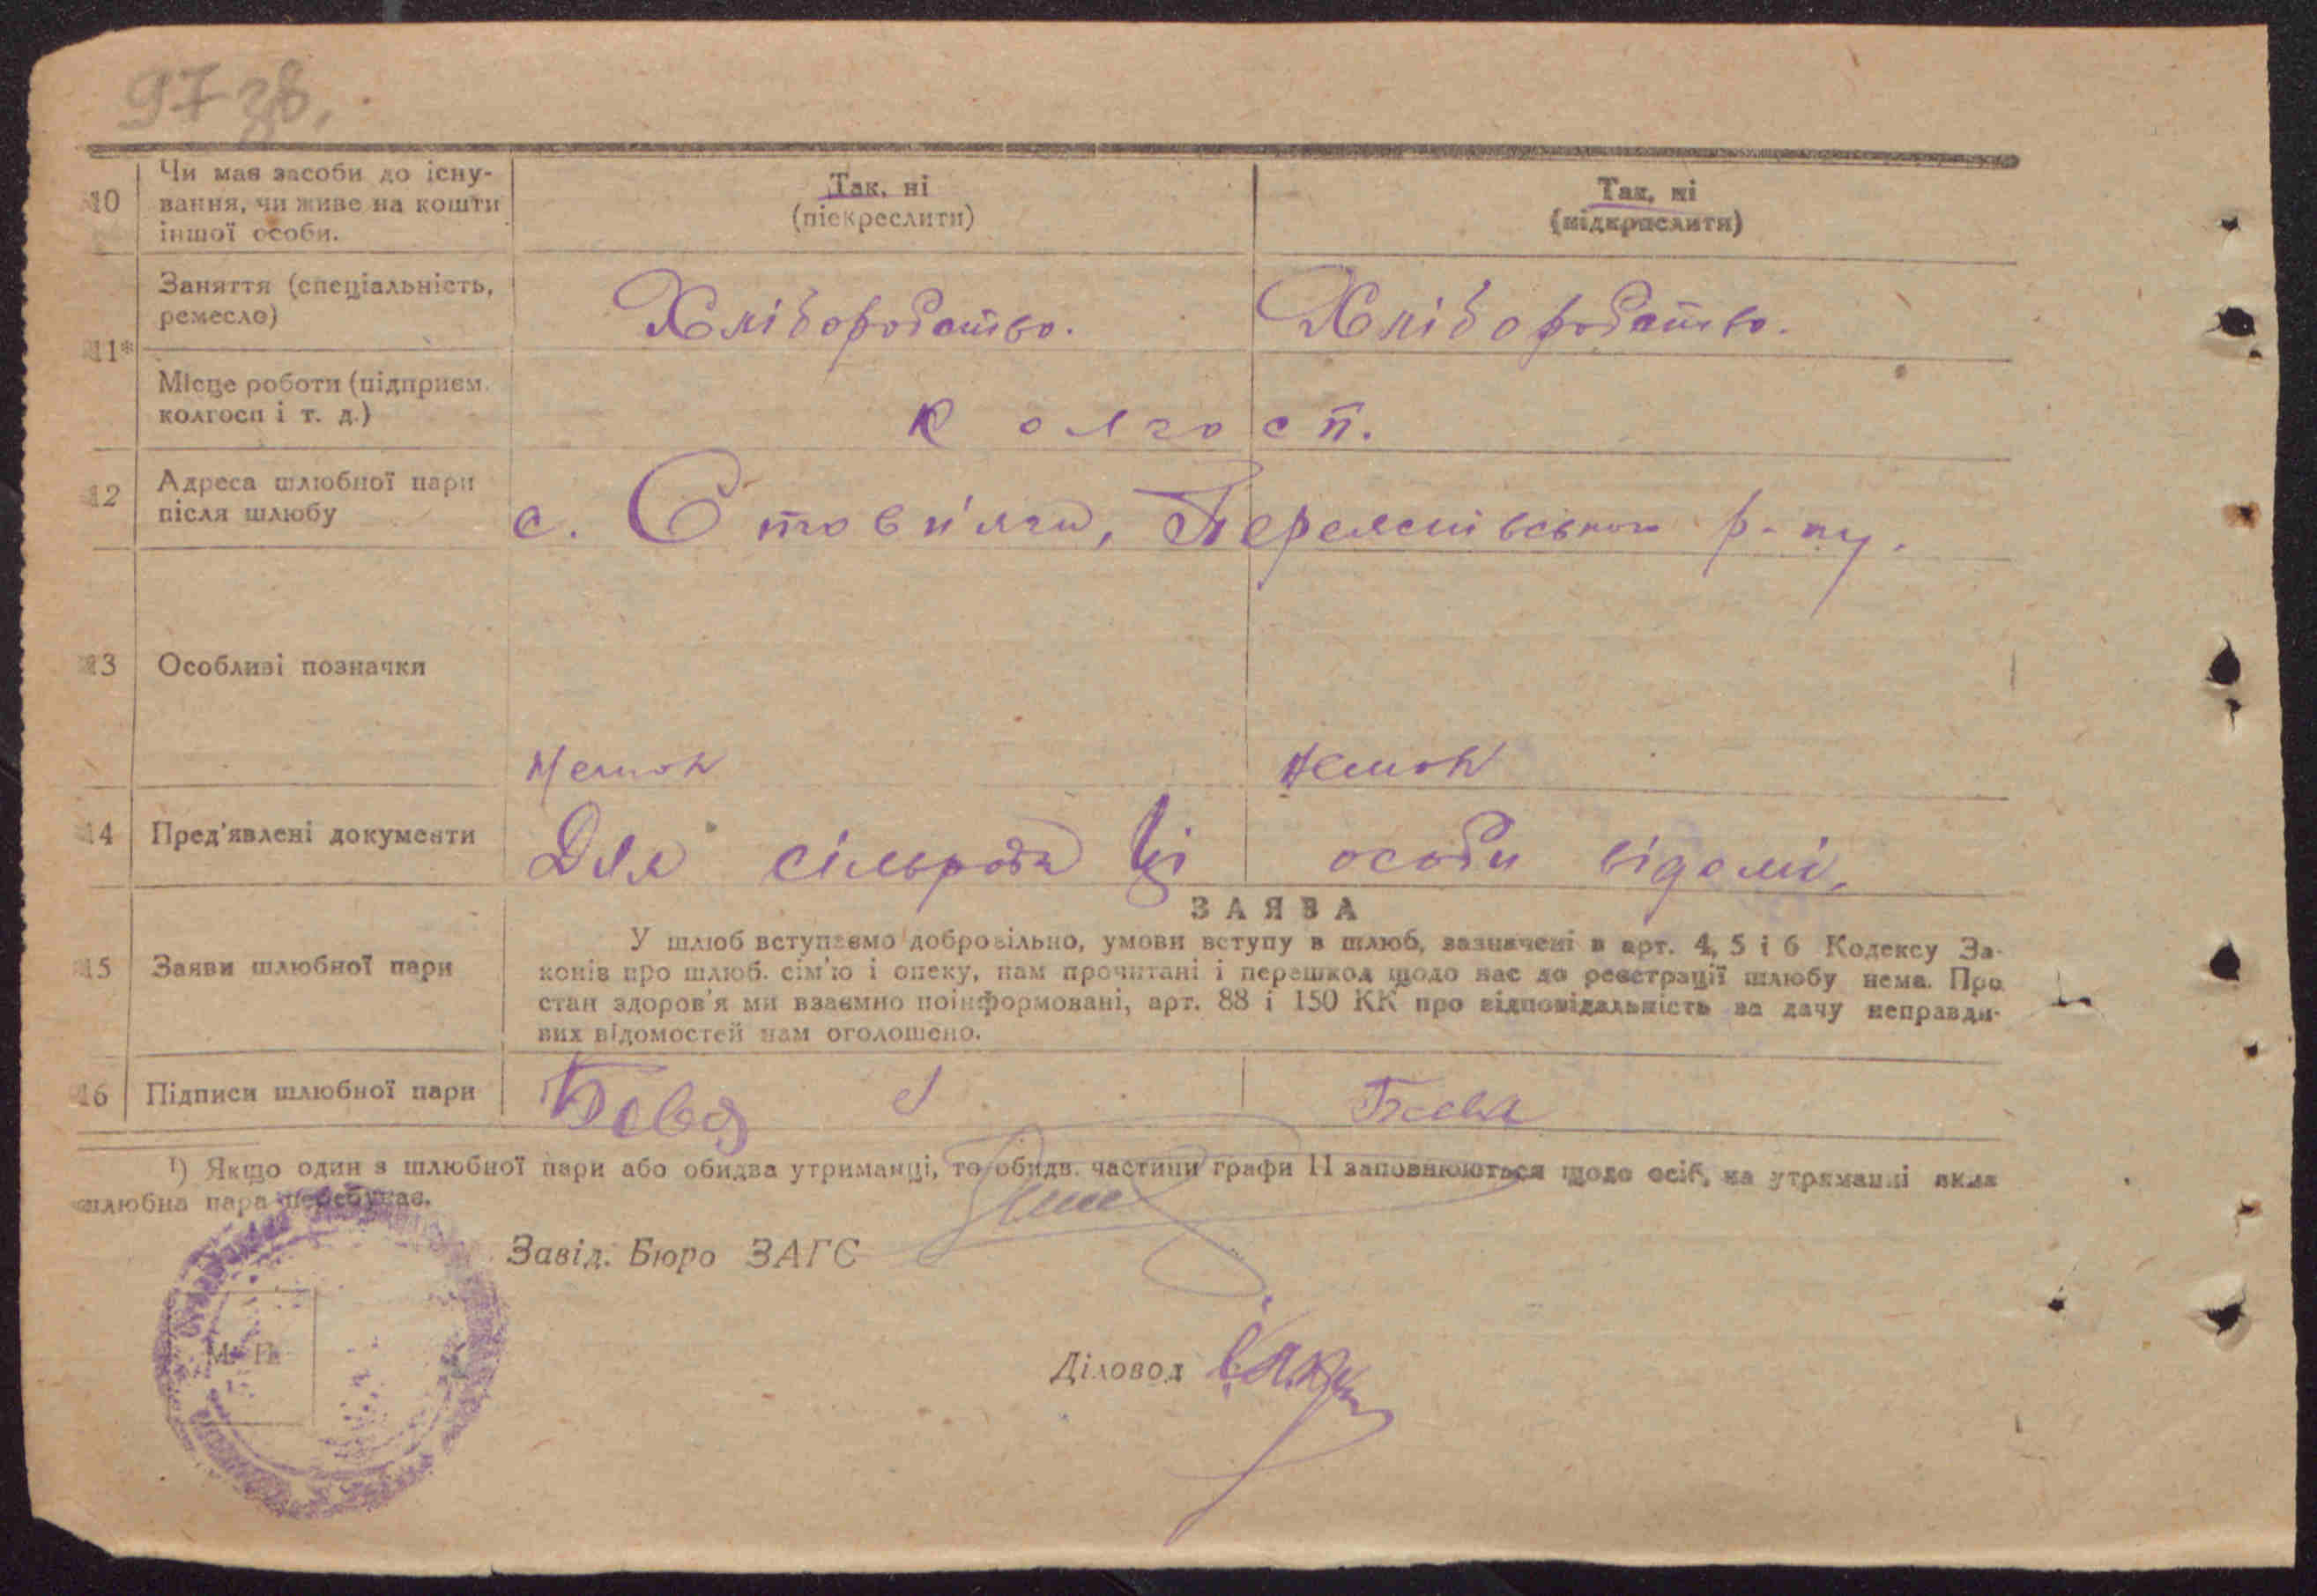 97 зв.
10 Чи має засоби до існу-
вання, чи живе на кошти
іншої особи.
Так, ні
(піекреслити)
Так, ні
(підкреслити)
11*
Заняття (спеціальність,
ремесло)
Хліборобство.
Хліборобство.
Місце роботи (підприєм.
колгосп і т. д.)
колгосп.
12 Адреса шлюбної пари
після шлюбу
с. Стовп'яги, Переяслівського р-ну.
13 Особливі позначки
Немає
Немає
14 Пред'явлені документи
Для сільради ці особи відомі.
15 Заяви шлюбної пари
ЗАЯВА
У шлюб вступаємо добровільно, умови вступу в шлюб, зазначені в арт. 4, 5 і 6 Кодексу За-
конів про шлюб. сім'ю і опеку, нам прочитані і перешкод щодо нас до реєстрації шлюбу нема. Про
стан здоров'я ми взаємно поінформовані, арт. 88 і 150 КК про відповідальність за дачу неправди-
вих відомостей нам оголошено.
16 Підписи шлюбної пари
¹) Якщо один з шлюбної пари або обидва утриманці, то обидв. частини графи 11 заповнюються щодо осіб, на утриманні яких
шлюбна пара перебуває.
Завід. Бюро ЗАГС
М. П.
Діловод